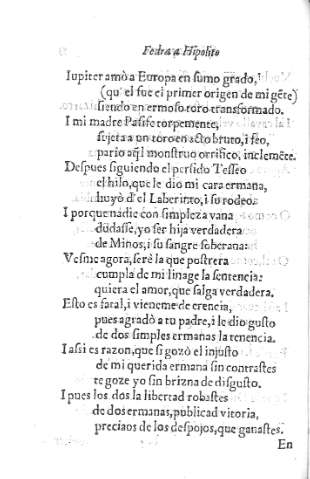 Fedra a Hipolito
Iupiter amò a Europa en sumo grado,
(qu'el fue el primer origen de mi gẽte)
siendo en ermoso toro transformado.
I mi madre Pasife torpemente,
sujeta a un toro en acto bruto, i feo,
pario aq̃l monstruo orrifico, inclemẽte.
Despues siguiendo el perfido Teseo
el hilo, que le dio mi cara ermana,
huyò d'el Laberinto, i su rodeo.
I porque nadie con simpleza vana
dudasse, yo ser hija verdadera
de Minos, i su sangre soberana:
Vesme agora, serè la que postrera
cumpla de mi linage la sentencia:
quiera el amor, que salga verdadera.
Esto es fatal, i vieneme de erencia,
pues agradò a tu padre, i le dio gusto
de dos simples ermanas la tenencia.
I assi es razon, que si gozò el injusto
de mi querida ermana sin contrastes
te goze yo sin brizna de disgusto.
I pues los dos la libertad robastes
de dos ermanas, publicad vitoria,
preciaos de los despojos, que ganastes.
En